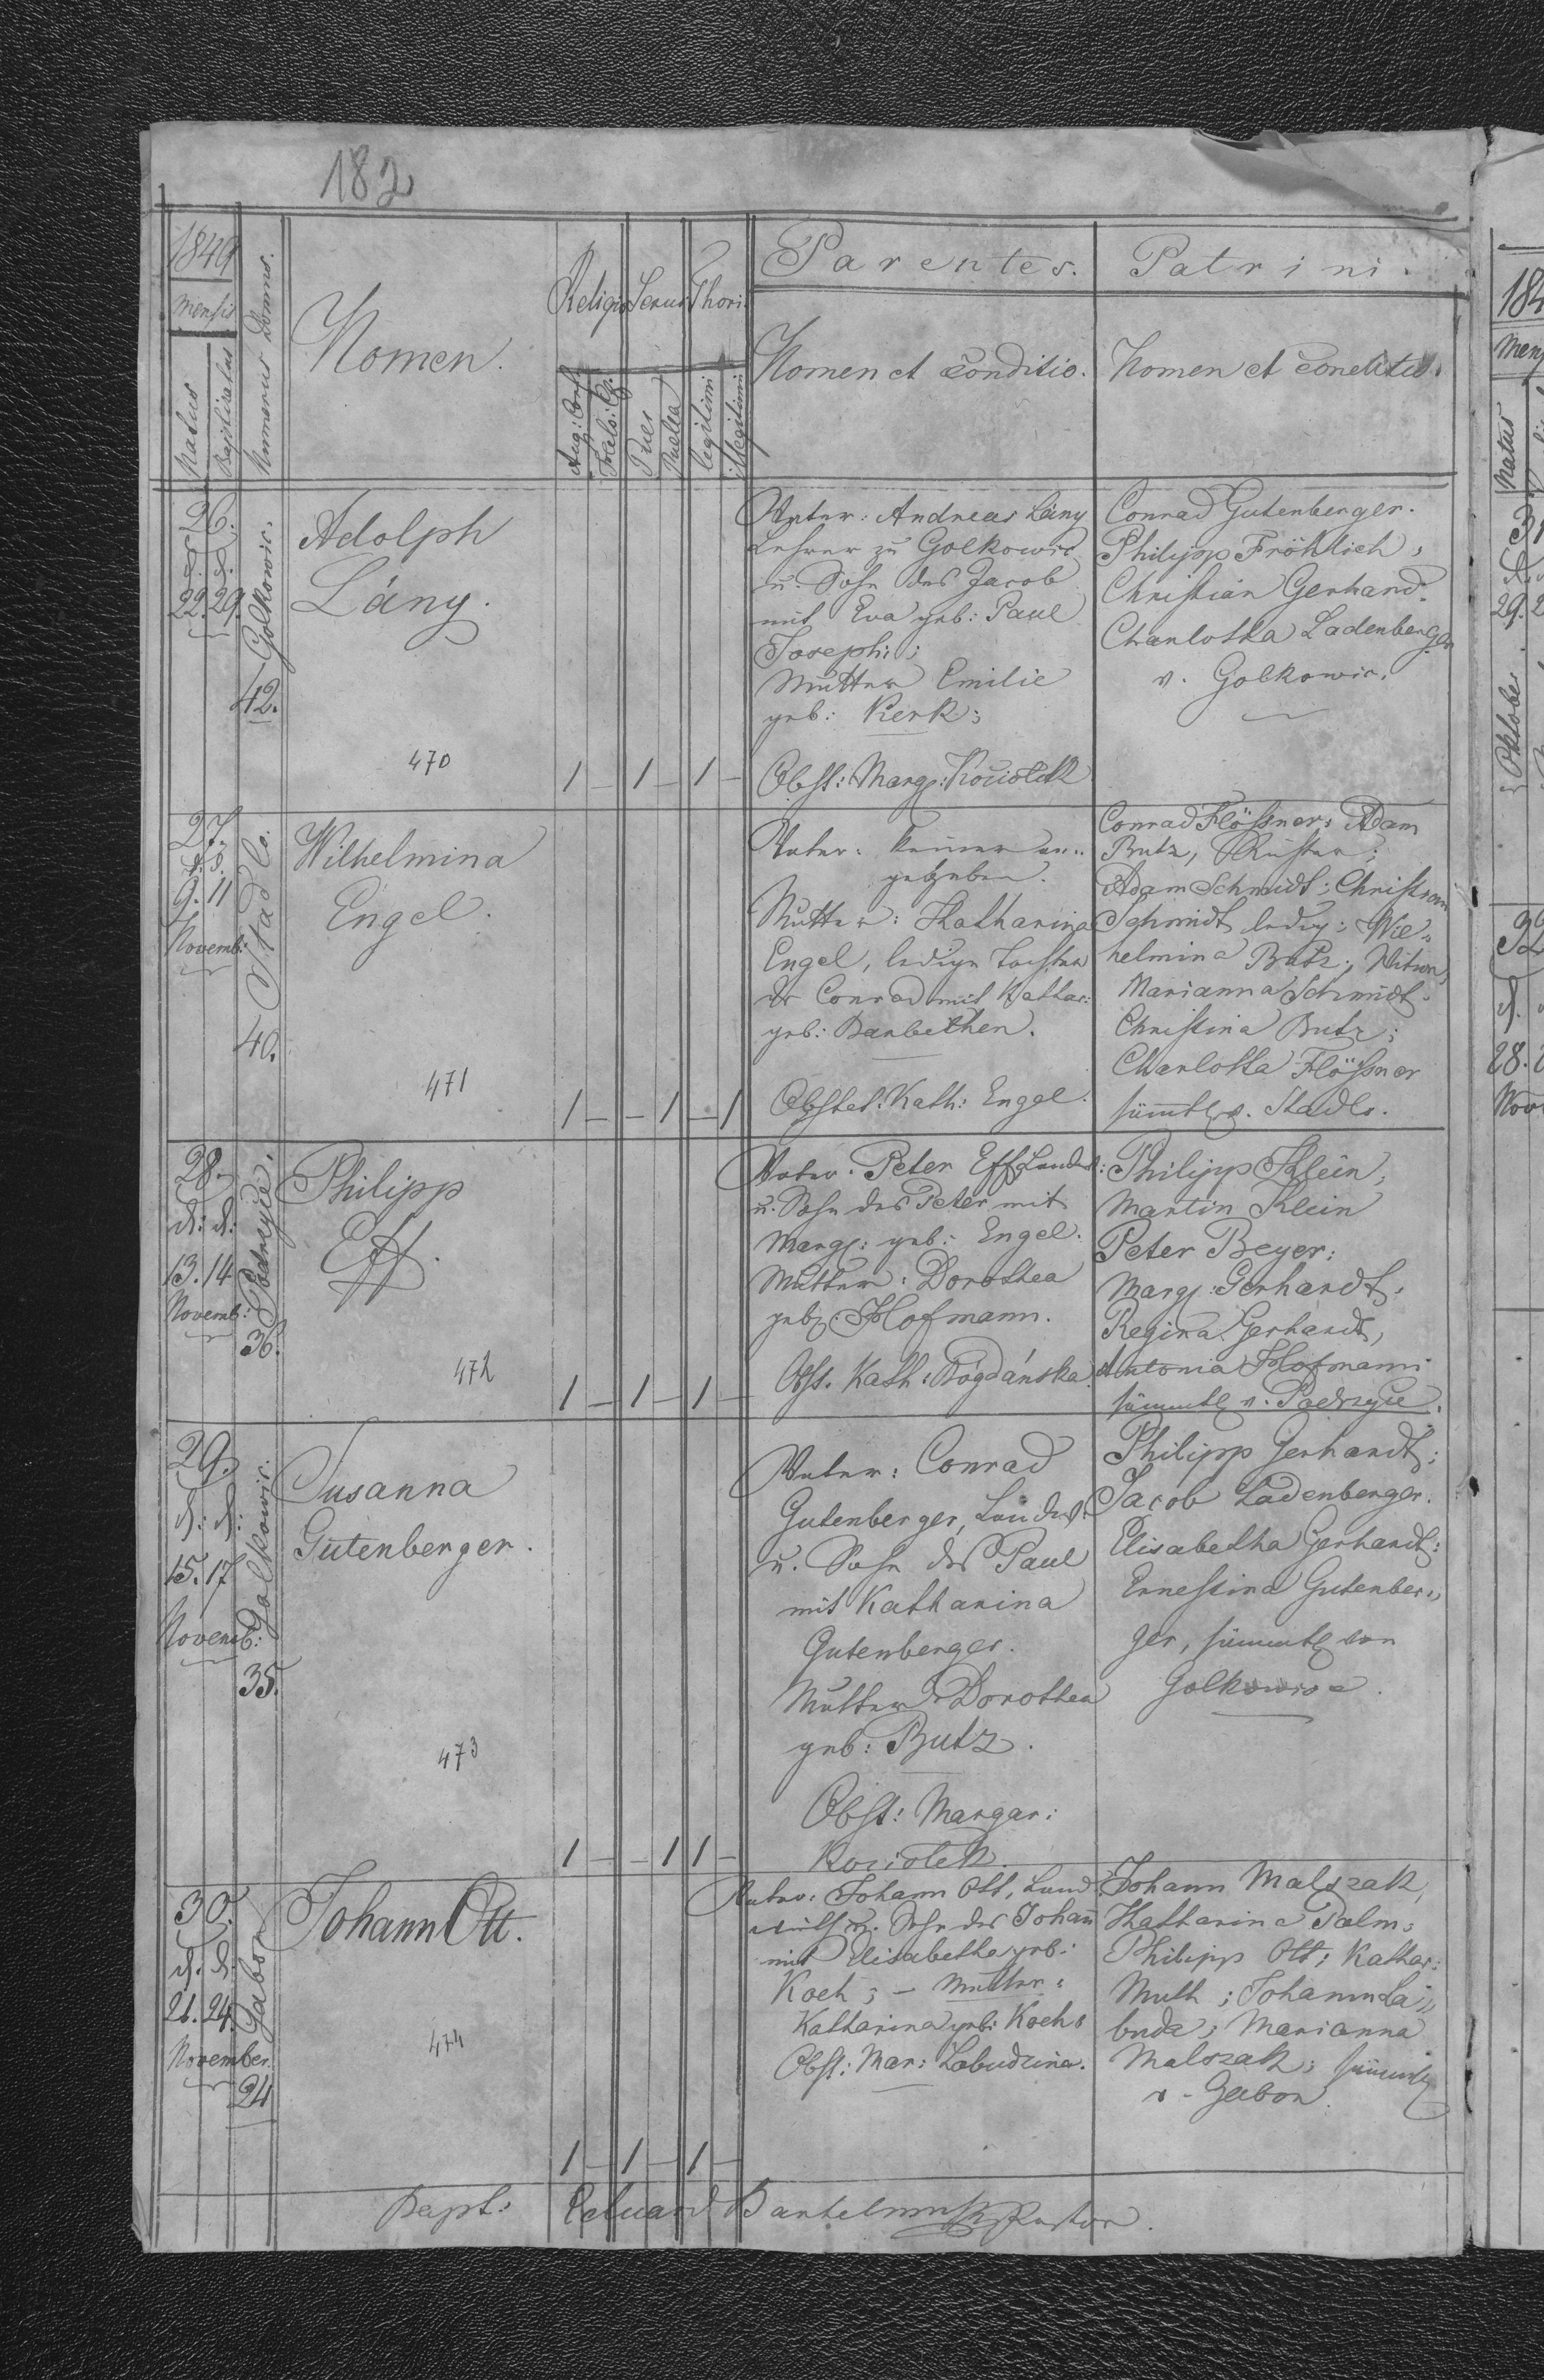 182
1849
mensis
natus
Baptisatus
Numerus Domus.
Nomen.
Religio
Sexus
Thori
Aug: Conf.
Puer
Puella
legitimi
illegitimi
Parentes.
Nomen et Conditio.
Patrini.
Nomen et Conditio.
26.
d. d.
22. 29.
Golkowic.
42.
Adolph
Lány.
470
1 – 1 – 1 –
Vater: Andreas Lány
Lehrer zu Golkowic
u. Sohn des Jacob
mit Eva geb: Paul
Josephi;
Mutter Emilie
geb: Kerk;
Obst: Marg: Kociolek
Conrad Gutenberger.
Philipp Fröhlich,
Christian Gerhard.
Charlotta Ladenberger
v. Golkowic.
27.
d. d.
9. 11
Novemb:
Stadlo.
40.
Wilhelmina
Engel.
471
1 – – 1 – 1
Vater: Keiner an„
gegeben.
Mutter: Katharina
Engel, ledige Tochter
des Conrad mit Kathar:
geb: Barbethen.
Obstet: Kath: Engel.
Conrad Flößner; Adam
Butz,
Adam Schmidt; Christian
Schmidt ledig; Wil„
helmina Butz; Witwe,
Marianna Schmidt.
Christina Butz;
Charlotta Flößner
sämtl. v. Stadlo.
28.
d: d:
13. 14
Novemb:
Podrzyce.
36.
Philipp
Eff.
472
1 – 1 – 1 –
Vater. Peter Eff, Landw:
u. Sohn des Peter mit
Marg: geb: Engel.
Mutter: Dorothea
geb: Hofmann.
Obst. Kath: Bogdańska.
Philipp Klein,
Martin Klein
Peter Beyer:
Marg: Gerhardt,
Regina Gerhardt,
Antonia Hofmann
sämmtl v. Podrzyce.
29.
d: d:
15. 17
Novemb:
Golkowic.
35.
Susanna
Gutenberger.
473
1 – – 1 1 –
Vater: Conrad
Gutenberger, Landw.
u. Sohn des Paul
mit Katharina
Gutenberger.
Mutter Dorothea
geb: Butz.
Obst: Margar:
Kociolek.
Philipp Gerhardt;
Jacob Ladenberger.
Elisabetha Gerhardt:
Ernestina Gutenber„
ger, sämmtl von
Golkowice.
30.
d. d.
21. 24.
November.
Gabon
24
Johann Ott.
474
1 – 1 – 1 –
Vater: Johann Ott, Land
wirth u. Sohn des Johann
mit Elisabetha geb:
Koch; – Mutter:
Katharina geb: Koch.
Obst: Mar: Labudzina.
Johann Malszak,
Katharina Palm;
Philipp Ott; Kathar:
Muth; Johann La„
buda; Marianna
Malszak; sämmtl
v. Gabon.
Bapt: Eduard Bartelmuss Pastor.
184
Mens
Natus
29.
Oktober
32
d.
28.
Nov